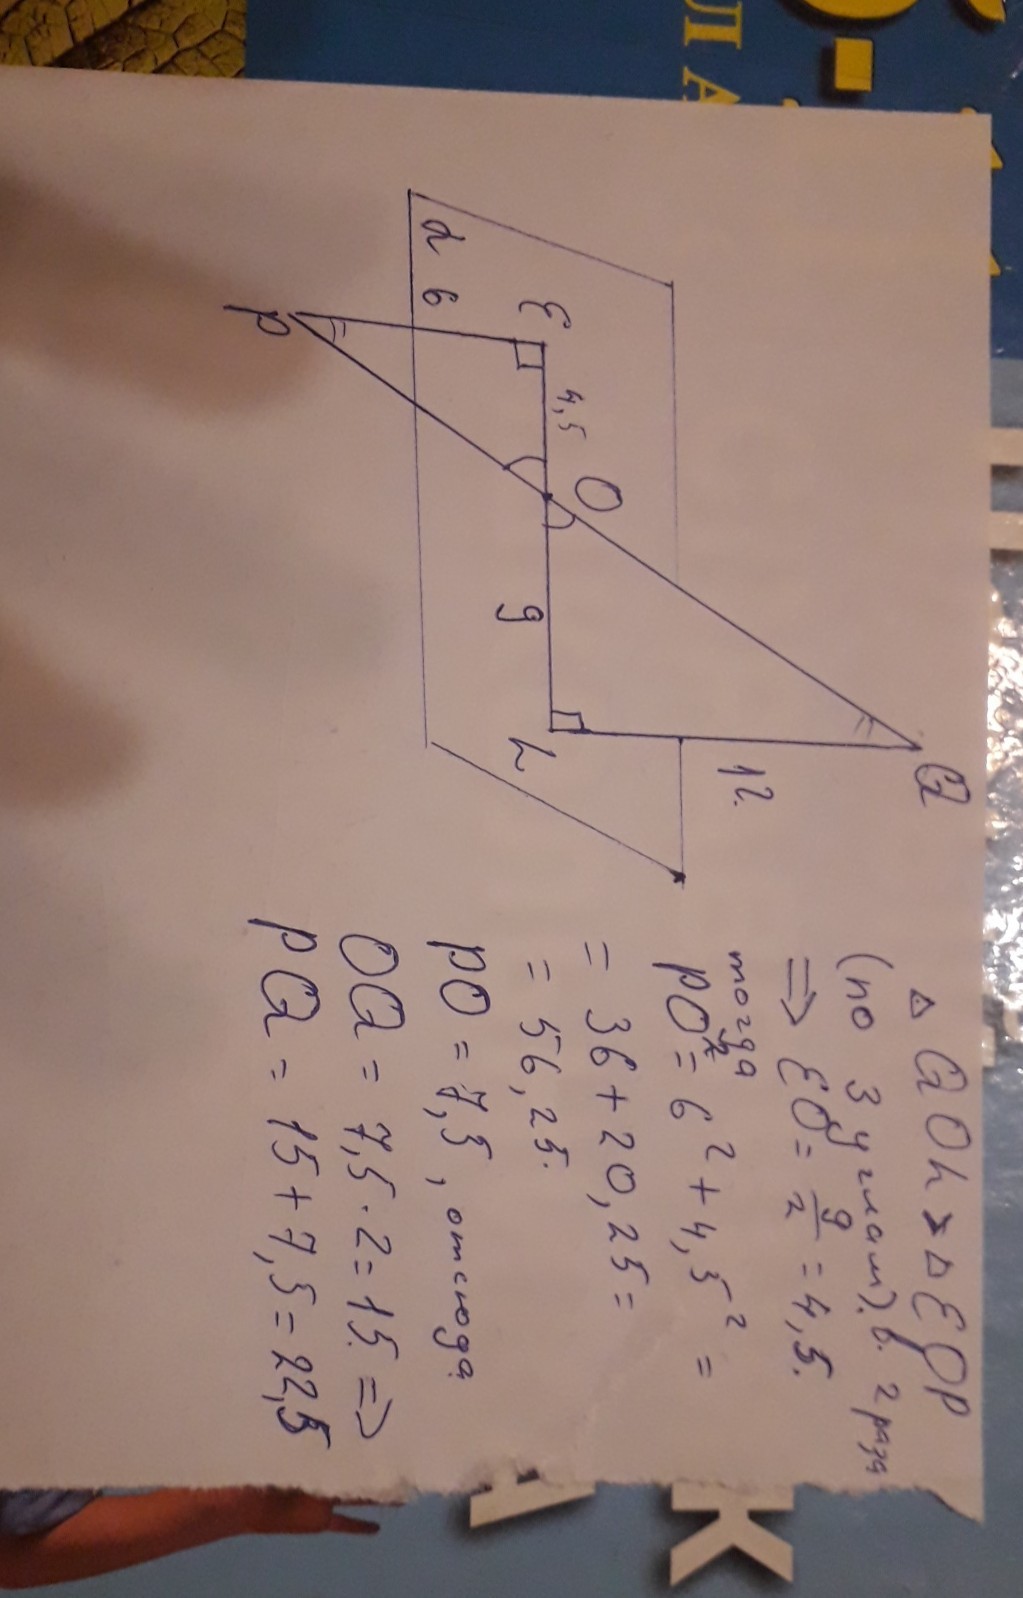 Q
12
O
E 4,5
9
L
α 6
P
△ QOL > △ EOP
(по 3 углам). в 2 раза
=> EO = 9/2 = 4,5.
тогда
PO² = 6² + 4,5² =
= 36 + 20,25 =
= 56,25.
PO = 7,5, отсюда
OQ = 7,5 · 2 = 15 =>
PQ = 15 + 7,5 = 22,5
К